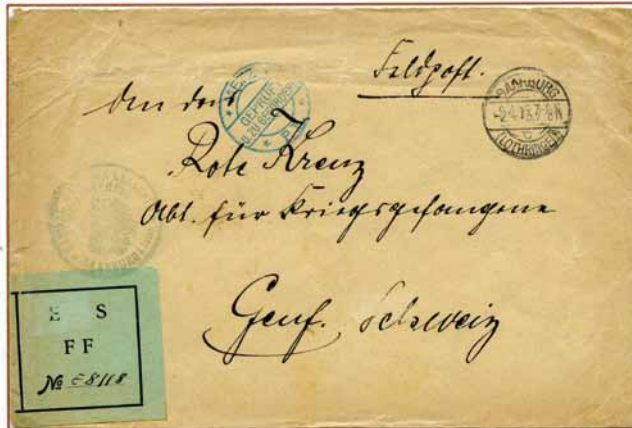 Feldpost.
SAARBURG
(LOTHRINGEN)
GEPRÜFT
An das
Rote Kreuz
Abt. für Kriegsgefangene
Genf. Schweiz
E S
FF
No E8118